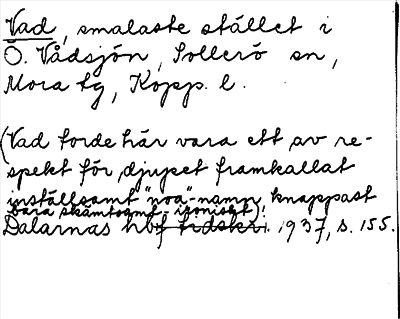 Vad, smalaste stället i
Ö. Vådsjön, Sollerö sn,
Mora tg, Kopp. l.
(Vad torde här vara ett av re-
spekt för djupet framkallat
inställsamt "noa"-namn, knappast
bara skämtsamt-ironiskt)!
Dalarnas hbf tidskr. 1937, s. 155.